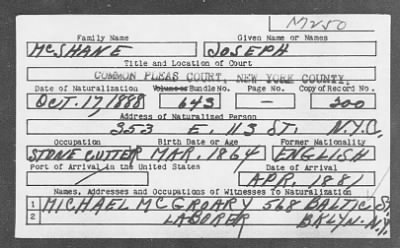 M250
Family Name Given Name or Names
McSHANE JOSEPH
Title and Location of Court
COMMON PLEAS COURT, NEW YORK COUNTY.
Date of Naturalization Volume or Bundle No. Page No. Copy of Record No.
OCT. 17, 1888 643 — 200
Address of Naturalized Person
353 E. 113 ST. N.Y.C.
Occupation Birth Date or Age Former Nationality
STONE CUTTER MAR. 1864 ENGLISH
Port of Arrival in the United States Date of Arrival
/ APR. 1881
Names, Addresses and Occupations of Witnesses To Naturalization
1 MICHAEL McGROARY 568 BALTIC ST
2 LABORER BKLYN. N.Y.